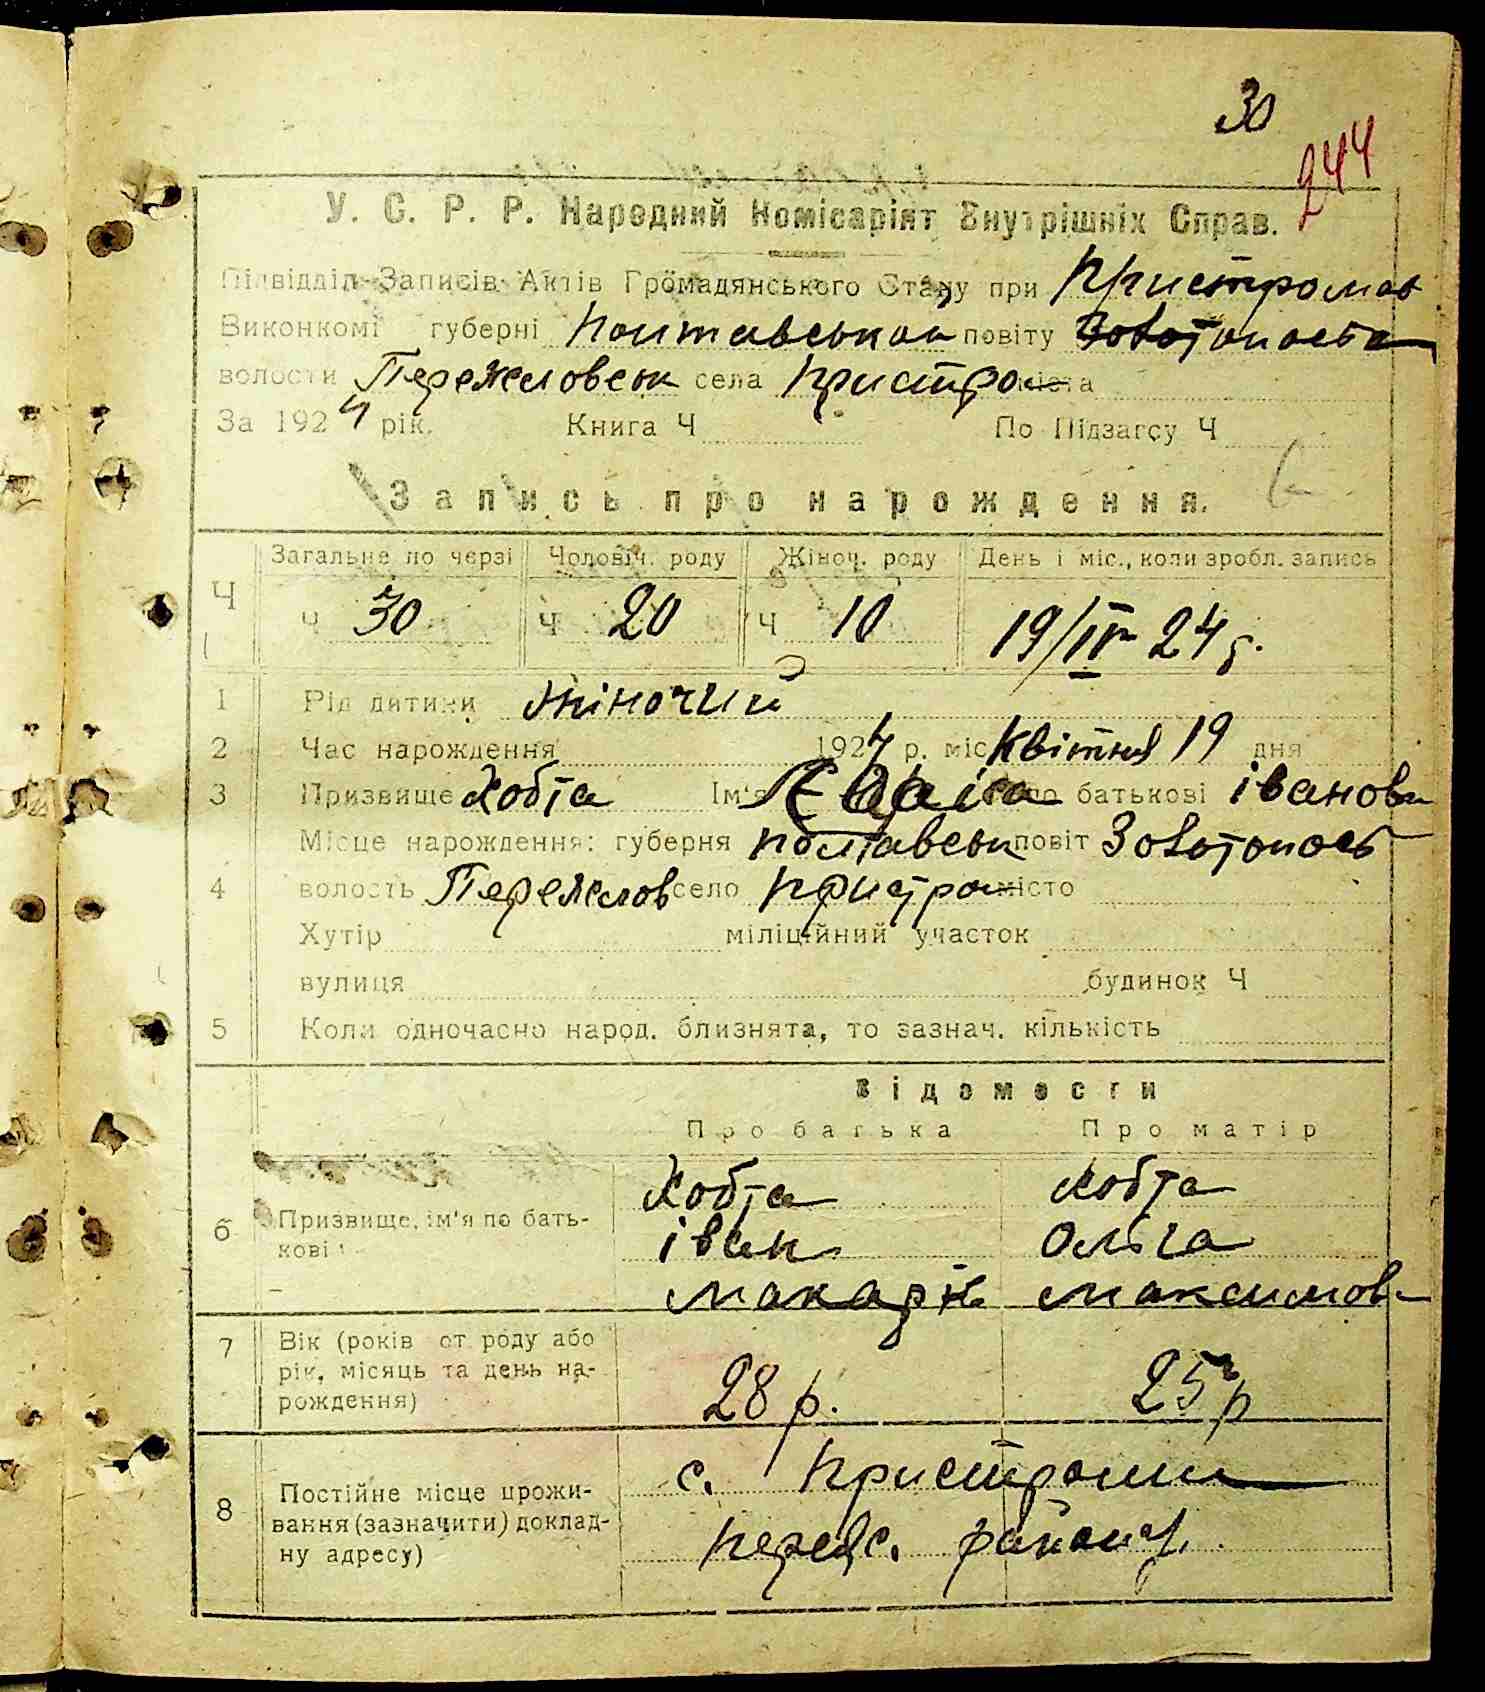 30
244
У. С. Р. Р. Народний Комісаріят Внутрішніх Справ.
Підвідділ Записів Актів Громадянського Стану при Пристромсь
Виконкомі губерні Полтавській повіту Золотоноськ
волости Переяславськ села Пристром міста
За 1924 рік. Книга Ч По Підзагсу Ч
Запись про народження.
Ч Загальне по черзі Чоловіч. роду Жіноч. роду День і міс., коли зробл. запись
Ч 30 Ч 20 Ч 10 19/IV 24 р.
1 Рід дитини жіночий
2 Час народження 1924 р. міс Квітня 19 дня
3 Призвище Хобта Ім'я по батькові Іванов
Місце народження: губерня Полтавськ повіт Золотоноськ
4 волость Переяслов село Пристром місто
Хутір міліційний участок
вулиця будинок Ч
5 Коли одночасно народ. близнята, то зазнач. кількість
Відомости
Про батька Про матір
6 Призвище, ім'я по бать-
кові
Хобта Хобта
Іван Ольга
Макарів Максимов
7 Вік (років от роду або
рік, місяць та день на-
рождення)
28 р. 25 р
8 Постійне місце прожи-
вання (зазначити) доклад-
ну адресу)
с. Пристроми
Переяс. району